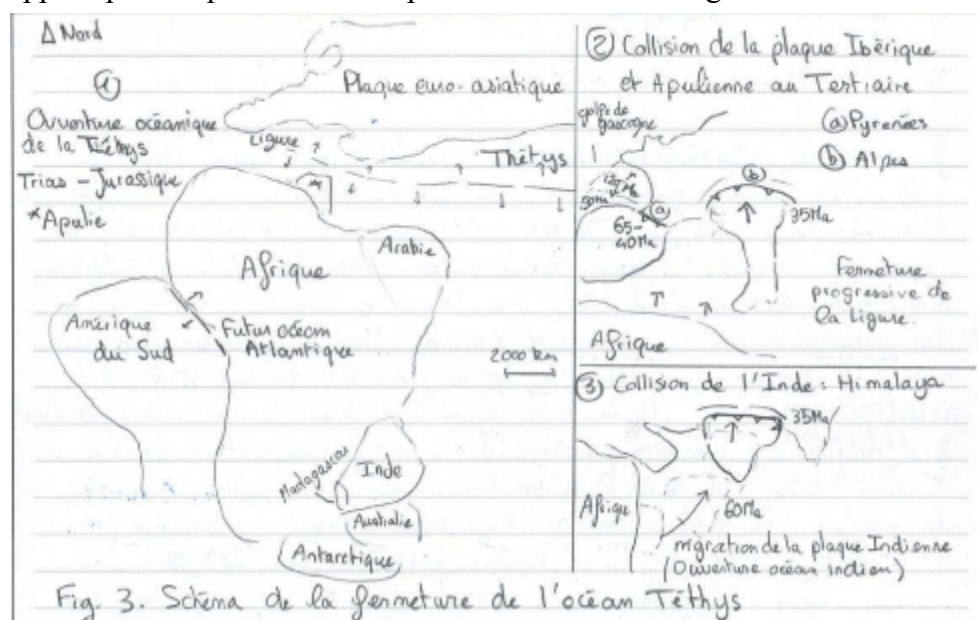 Δ Nord
①
Ouverture océanique
de la Téthys
Trias - Jurassique
*Apulie
Plaque euro-asiatique
Ligure
Thétys
*
Afrique
Arabie
Amérique
du Sud
Futur océan
Atlantique
2000 km
Madagascar
Inde
Australie
Antarctique
② Collision de la plaque Ibérique
et Apulienne au Tertiaire
golfe de
gascogne
ⓐ Pyrenées
ⓑ Alpes
ⓑ
ⓐ
50Ma
65-
40Ma
35Ma
Fermeture
progressive de
la ligure.
Afrique
③ Collision de l'Inde : Himalaya
35Ma
Afrique
60Ma
migration de la plaque Indienne
(Ouverture océan indien)
Fig. 3. Schéma de la fermeture de l'océan Téthys